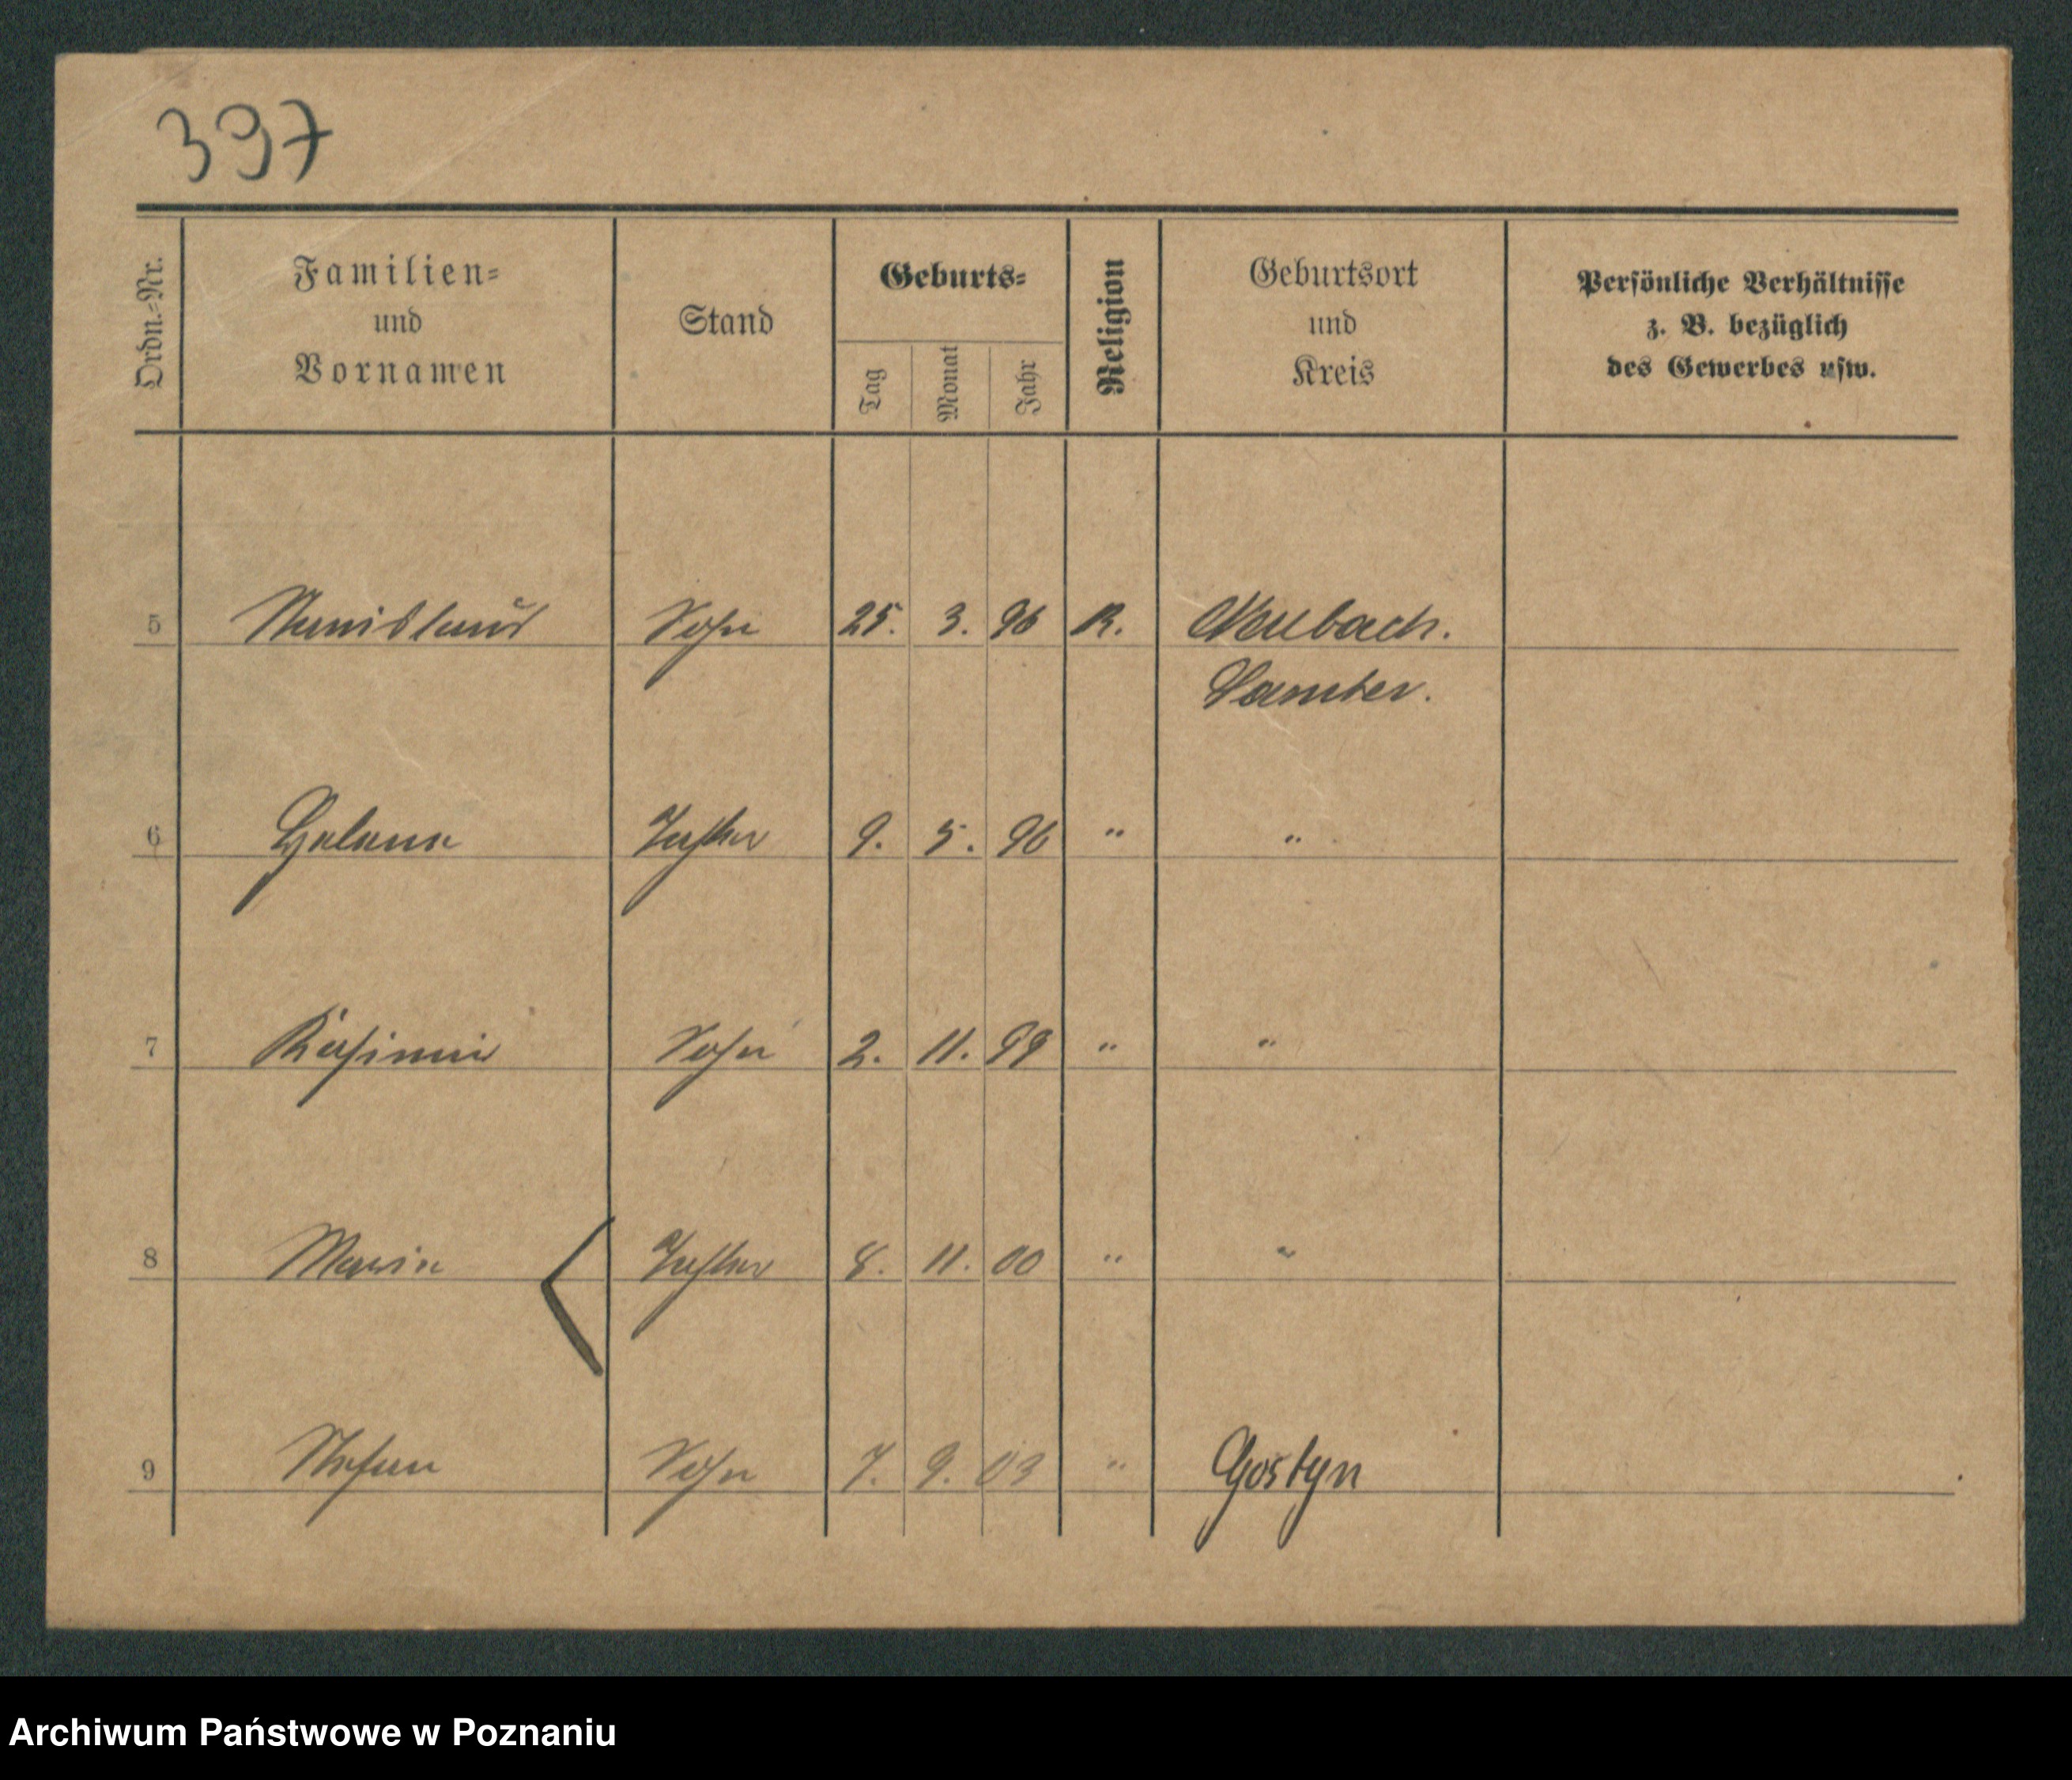 397
Ordn.-Nr.
Familien-
und
Vornamen
Stand
Geburts-
Tag
Monat
Jahr
Religion
Geburtsort
und
Kreis
Persönliche Verhältnisse
z. B. bezüglich
des Gewerbes usw.
5 Stanislaus Sohn 25. 3. 96 R.
Samter.
6 Helena Tochter 9. 5. 96 " "
7 Kasimir Sohn 2. 11. 99 " "
8 Maria Tochter 8. 11. 00 " "
9 Stefan Sohn 7. 9. 03 " Gostyn
Archiwum Państwowe w Poznaniu